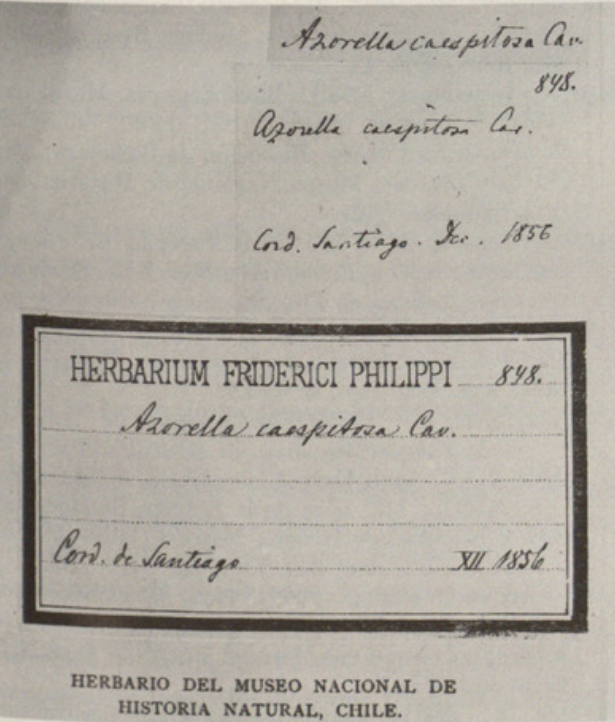 Azorella caespitosa Cav.
848.
Azorella caespitosa Cav.
Cord. Santiago. Dec. 1856
HERBARIUM FRIDERICI PHILIPPI 848.
Azorella caespitosa Cav.
Cord. de Santiago XII 1856
HERBARIO DEL MUSEO NACIONAL DE
HISTORIA NATURAL, CHILE.